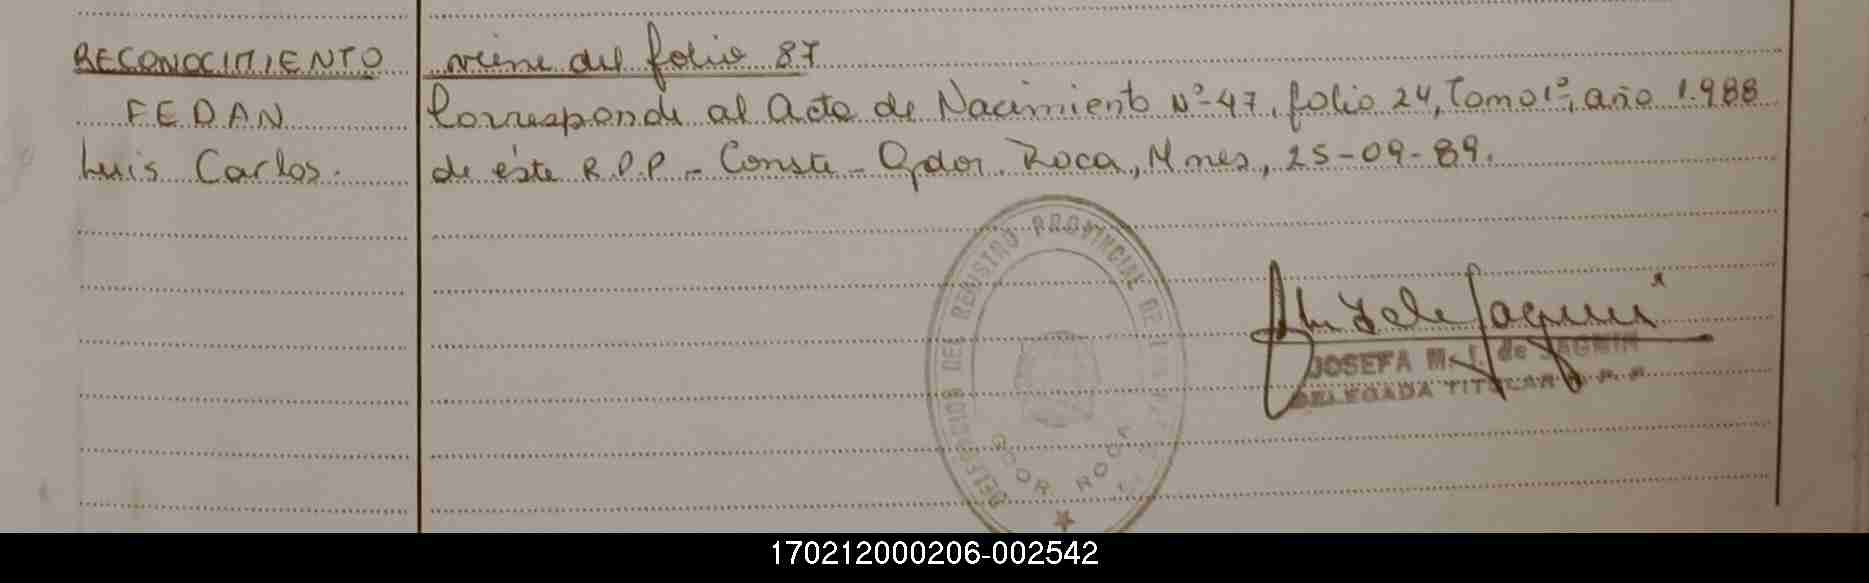 RECONOCIMIENTO
FEDAN
Luis Carlos.
viene del folio 87
Corresponde al Acta de Nacimiento Nº-47, folio 24, Tomo 1º, año 1.988
de éste R.P.P.- Conste- Gdor. Roca, Mnes, 25-09-89.
DELEGACION DEL REGISTRO PROVINCIAL DE LAS
GDOR ROCA
JOSEFA M. I. de JAGNIN
DELEGADA TITULAR R.P.P.
170212000206-002542